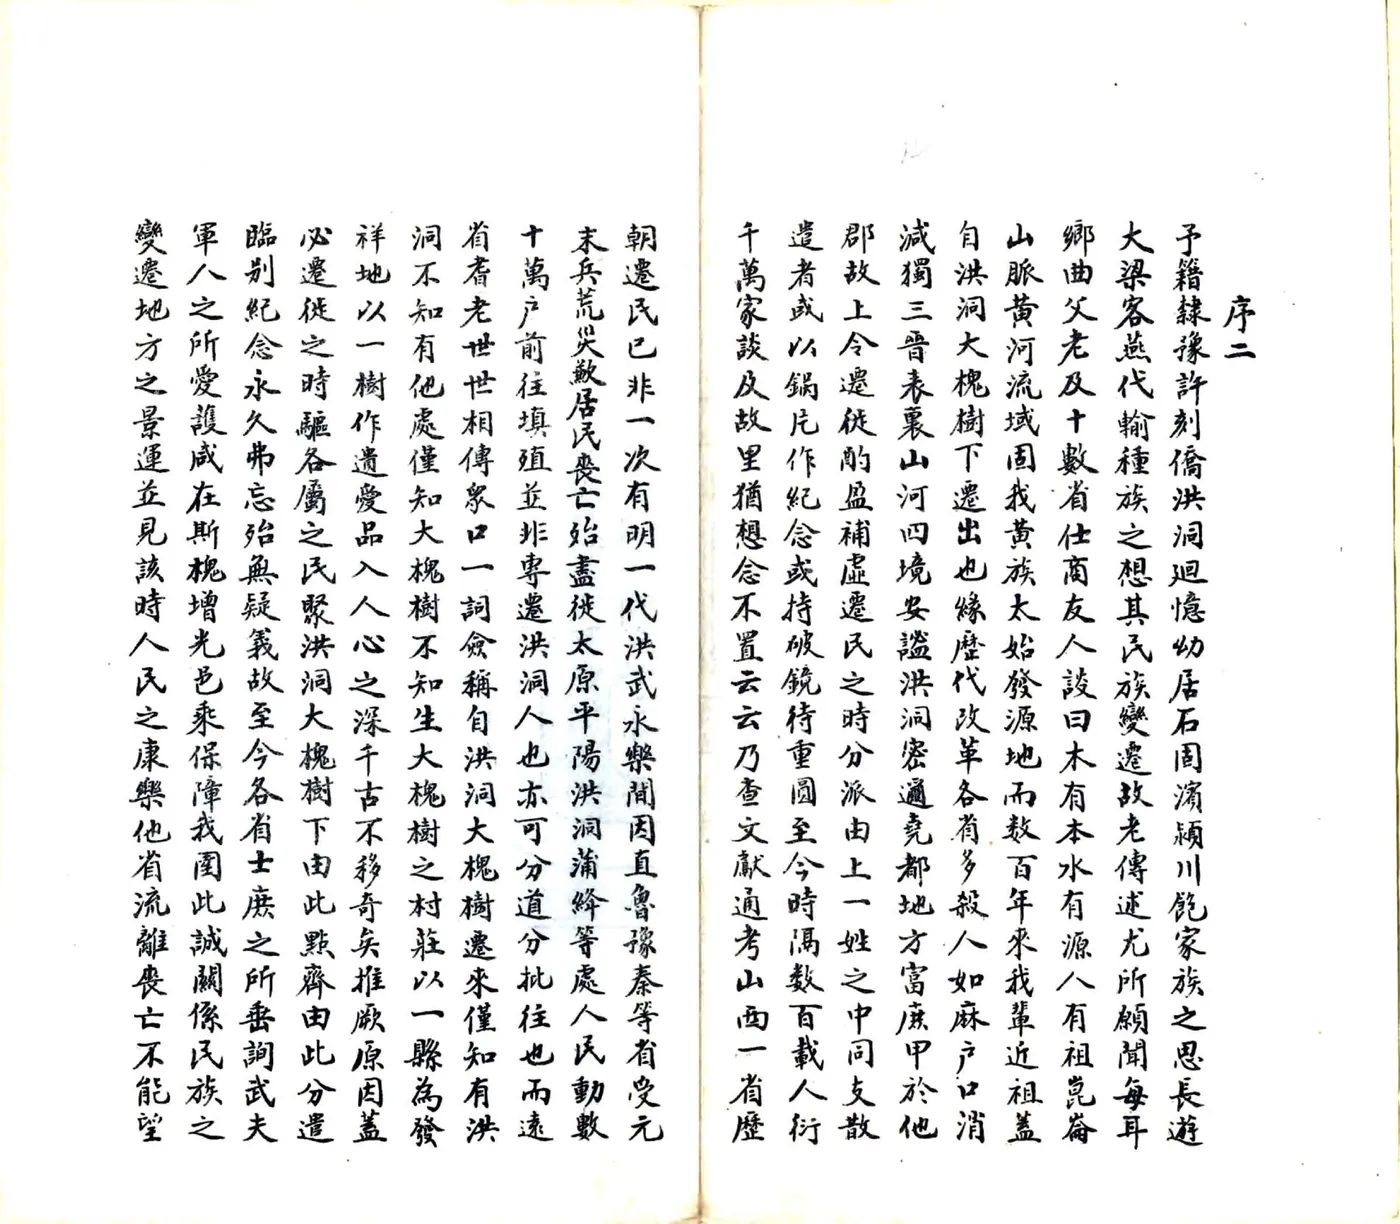 序二
予籍隸豫許刻僑洪洞廻憶幼居石固濱潁川飽家族之思長遊
大梁客燕代輸種族之想其民族變遷故老傳述尤所願聞每耳
鄉曲父老及十數省仕商友人談曰木有本水有源人有祖崑崙
山脈黃河流域固我黃族太始發源地而数百年來我輩近祖蓋
自洪洞大槐樹下遷出也緣歷代改革各省多殺人如麻户口消
減獨三晉表裏山河四境安謐洪洞密邇堯都地方富庶甲於他
郡故上令遷徙酌盈補虛遷民之時分派由上一姓之中同支散
遣者或以鍋片作紀念或持破鏡待重圓至今時隔数百載人衍
千萬家談及故里猶想念不置云云乃查文獻通考山西一省歷
朝遷民已非一次有明一代洪武永樂間因直魯豫秦等省受元
末兵荒災歉居民喪亡殆盡徙太原平陽洪洞蒲絳等處人民動數
十萬户前往填殖並非專遷洪洞人也亦可分道分批往也而遠
省耆老世世相傳衆口一詞僉稱自洪洞大槐樹遷來僅知有洪
洞不知有他處僅知大槐樹不知生大槐樹之村莊以一縣為發
祥地以一樹作遺愛品入人心之深千古不移奇矣推厥原因蓋
必遷徙之時驅各屬之民聚洪洞大槐樹下由此點齊由此分遣
臨别紀念永久弗忘殆無疑義故至今各省士庶之所垂詢武夫
軍人之所愛護咸在斯槐增光邑乘保障我圉此誠關係民族之
變遷地方之景運並見該時人民之康樂他省流離喪亡不能望